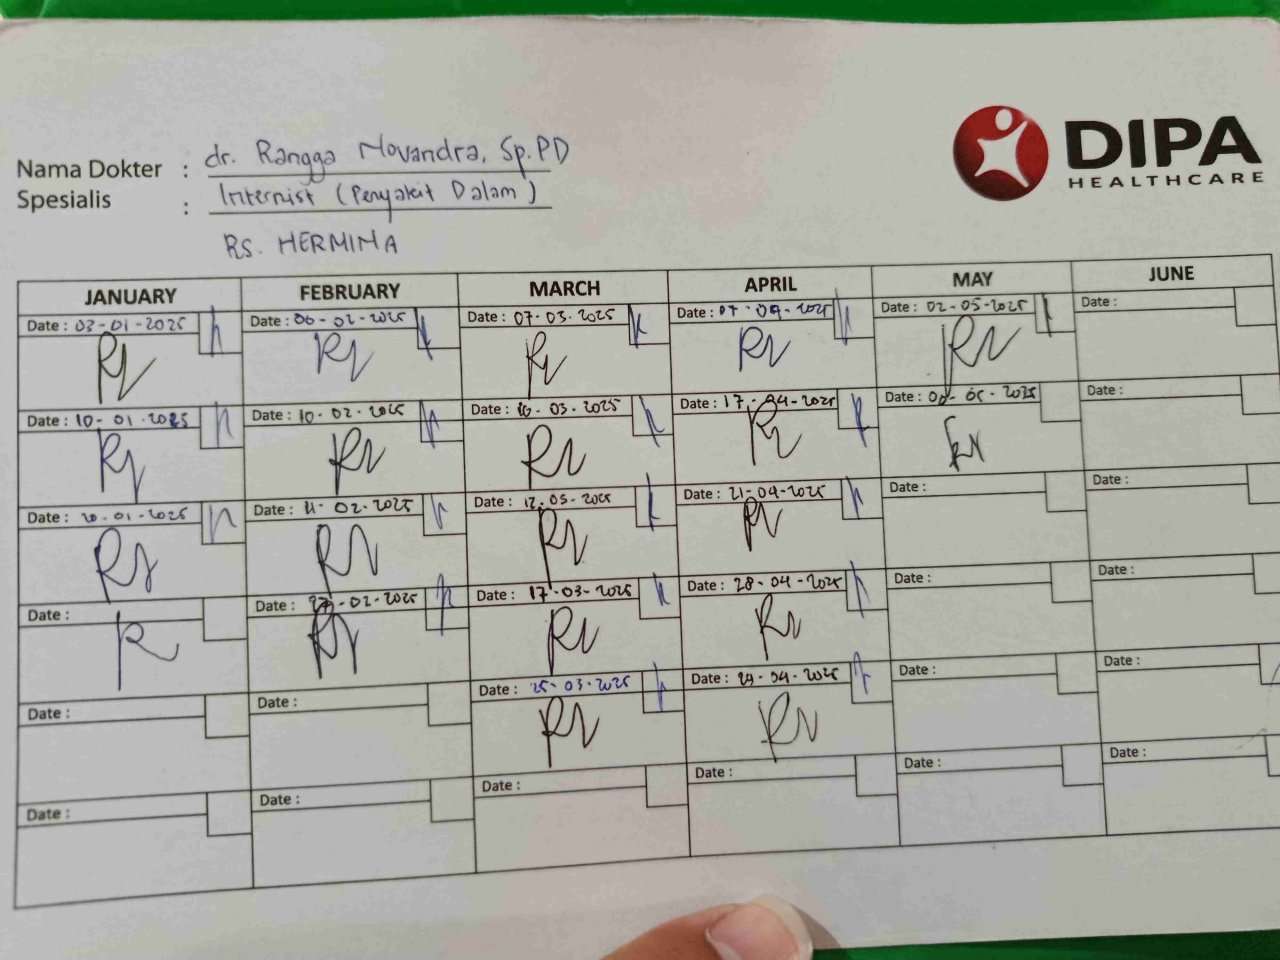 DIPA
HEALTHCARE
Nama Dokter : dr. Rangga Novandra, Sp.PD
Spesialis : Internist (Penyakit Dalam)
RS. HERMINA
JANUARY FEBRUARY MARCH APRIL MAY JUNE
Date : 03-01-2025 Date : 06-02-2025 Date : 07-03-2025 Date : 07-04-2025 Date : 02-05-2025 Date :
Date : 10-01-2025 Date : 10-02-2025 Date : 10-03-2025 Date : 17-04-2025 Date : 05-2025 Date :
Date : 20-01-2025 Date : 11-02-2025 Date : 12-03-2025 Date : 21-04-2025 Date : Date :
Date : Date : 27-02-2025 Date : 17-03-2025 Date : 28-04-2025 Date : Date :
Date : Date : Date : 25-03-2025 Date : 29-04-2025 Date : Date :
Date : Date : Date : Date : Date : Date :